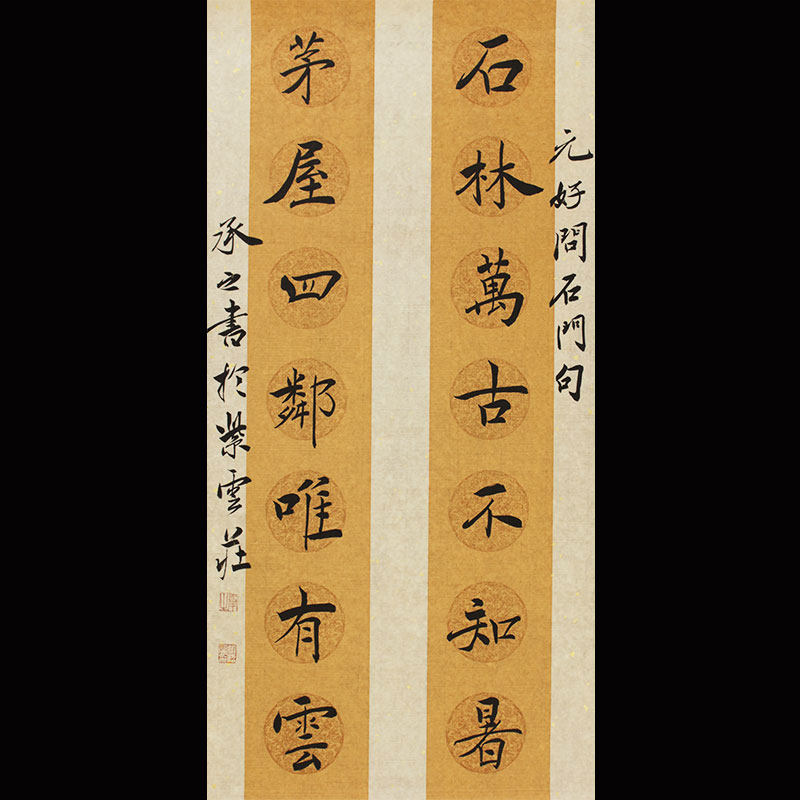 元好問石門句
石林萬古不知暑
茅屋四鄰唯有雲
承之書於紫雲莊